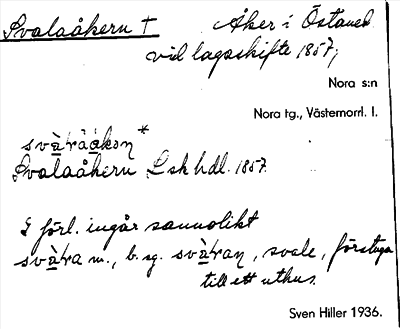 Svalaåkern † Åker i Östaned.
vid lagaskifte 1857,
Nora s:n
Nora tg., Västernorrl. l.
svàràåkən *
Svalaåkern Lsk hdl. 1857.
I förl. ingår sannolikt
svàra m., b. sg. svàran, svale, förstuga
till ett uthus.
Sven Hiller 1936.